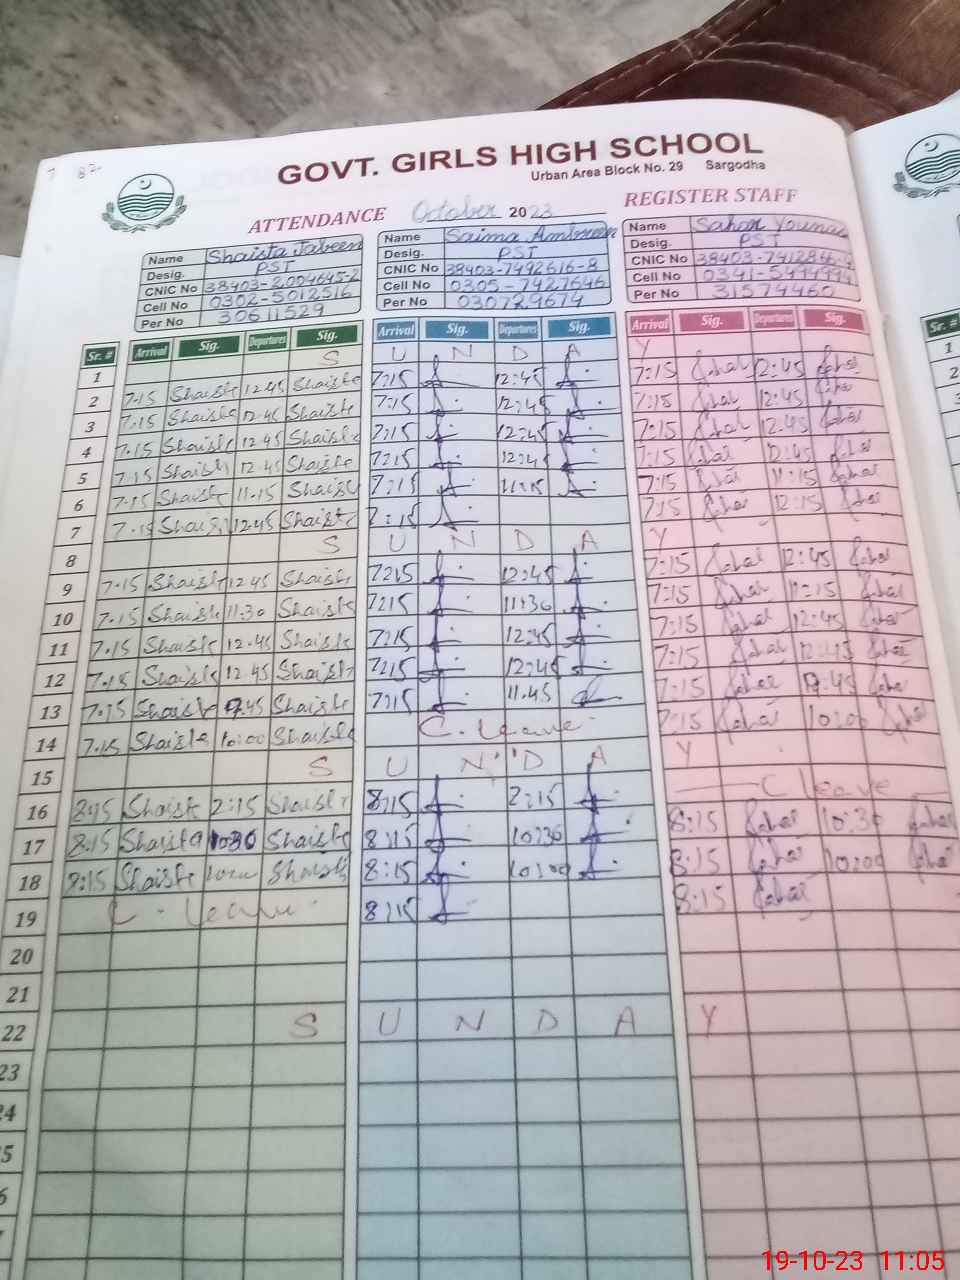 GOVT. GIRLS HIGH SCHOOL
Urban Area Block No. 29 Sargodha
ATTENDANCE October 2023 REGISTER STAFF
Name Shaista Jabeen Name Saima Name Sahar Younas
Desig. PST Desig. PST Desig. PST
CNIC No 38403-2004645-2 CNIC No 38403-7492616-8 CNIC No
Cell No 0302-5012516 Cell No 0305-7427646 Cell No
Per No 30611529 Per No 030729674 Per No 31574460
Sr. # Arrival Sig. Departures Sig. Arrival Sig. Departures Sig. Arrival Sig. Departures Sig. Sr. #
1 S U N D A Y 1
2 7:15 Shaiste 12:45 Shaiste 7:15 12:45 7:15 Sahar 12:45 Sahar 2
3 7:15 Shaiste 12:45 Shaiste 7:15 12:45 7:15 Sahar 12:45 Sahar 3
4 7:15 Shaiste 12:45 Shaiste 7:15 12:45 7:15 Sahar 12:45 Sahar
5 7:15 Shaiste 12:45 Shaiste 7:15 12:45 7:15 Sahar 12:45 Sahar
6 7:15 Shaiste 11:15 Shaiste 7:15 11:15 7:15 Sahar 11:15 Sahar
7 7:15 Shaiste 12:45 Shaiste 7:15 7:15 Sahar 12:15 Sahar
8 S U N D A Y
9 7:15 Shaiste 12:45 Shaiste 7:15 12:45 7:15 Sahar 12:45 Sahar
10 7:15 Shaiste 11:30 Shaiste 7:15 11:30 7:15 Sahar 11:15 Sahar
11 7:15 Shaiste 12:45 Shaiste 7:15 12:45 7:15 Sahar 12:45 Sahar
12 7:15 Shaiste 12:45 Shaiste 7:15 12:45 7:15 Sahar 12:45 Sahar
13 7:15 Shaiste Shaiste 7:15 11:45 7:15 Sahar Sahar
14 7:15 Shaiste 10:00 Shaiste C. leave 7:15 Sahar 10:00 Sahar
15 S U N D A Y
16 8:15 Shaiste 2:15 Shaiste 8:15 2:15 C leave
17 8:15 Shaista 10:30 Shaiste 8:15 10:30 8:15 Sahar 10:30 Sahar
18 8:15 Shaiste Shaiste 8:15 10:00 8:15 Sahar 10:00 Sahar
19 C. leave 8:15 8:15 Sahar
20
21
22 S U N D A Y
23
19-10-23 11:05